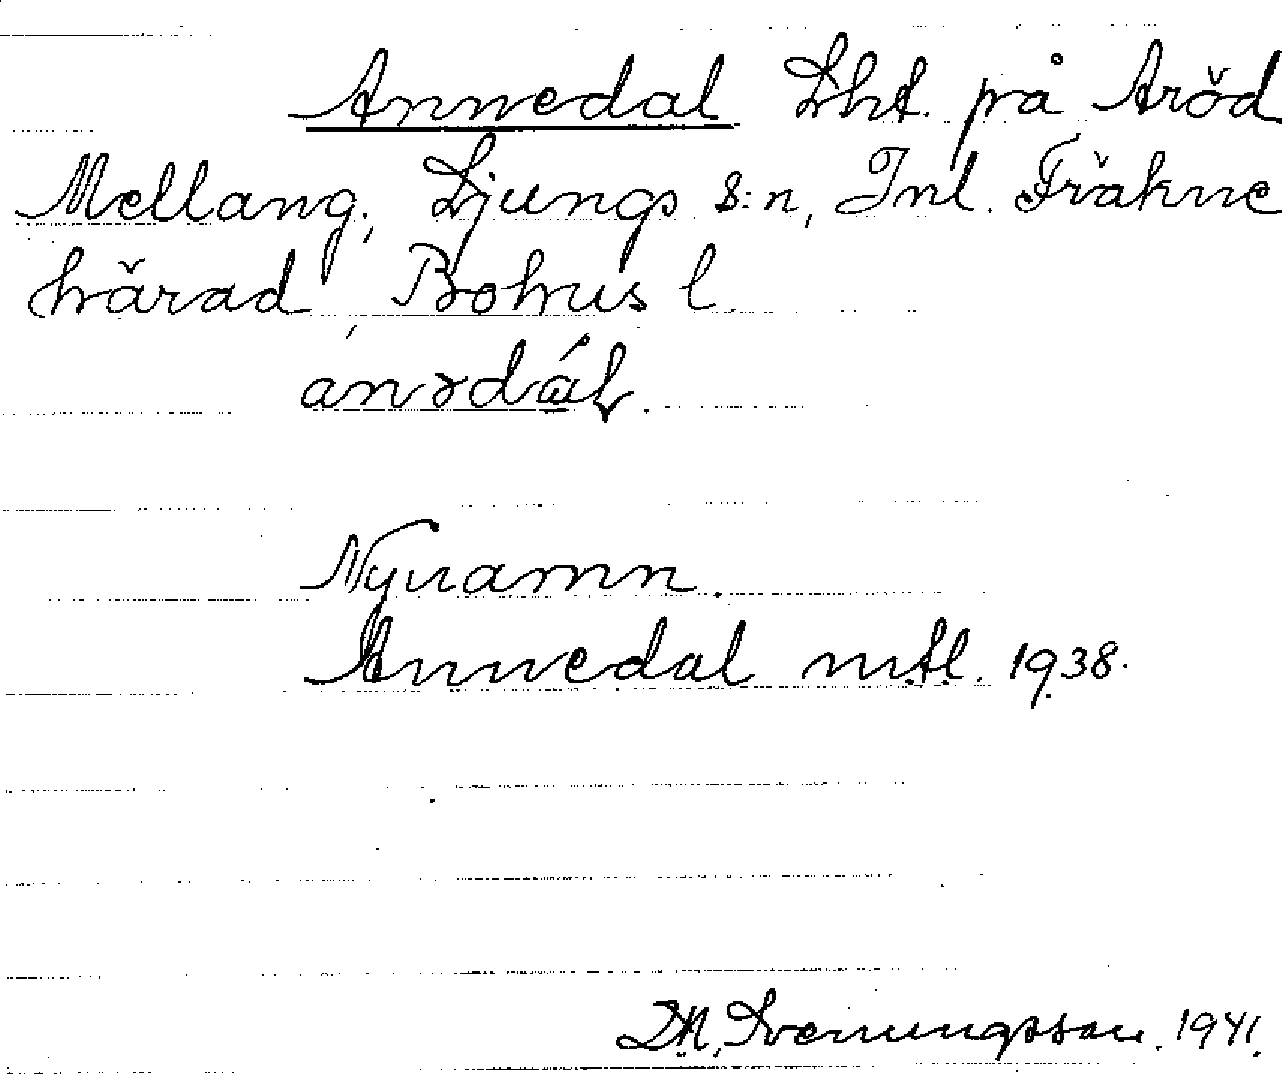 Annedal Lht. på Aröd
Mellang., Ljungs s:n, Inl. Fräkne
härad, Bohus l.
anədáL.
Nynamn.
Annedal mtl. 1938.
D.N. Svenungsson. 1941.